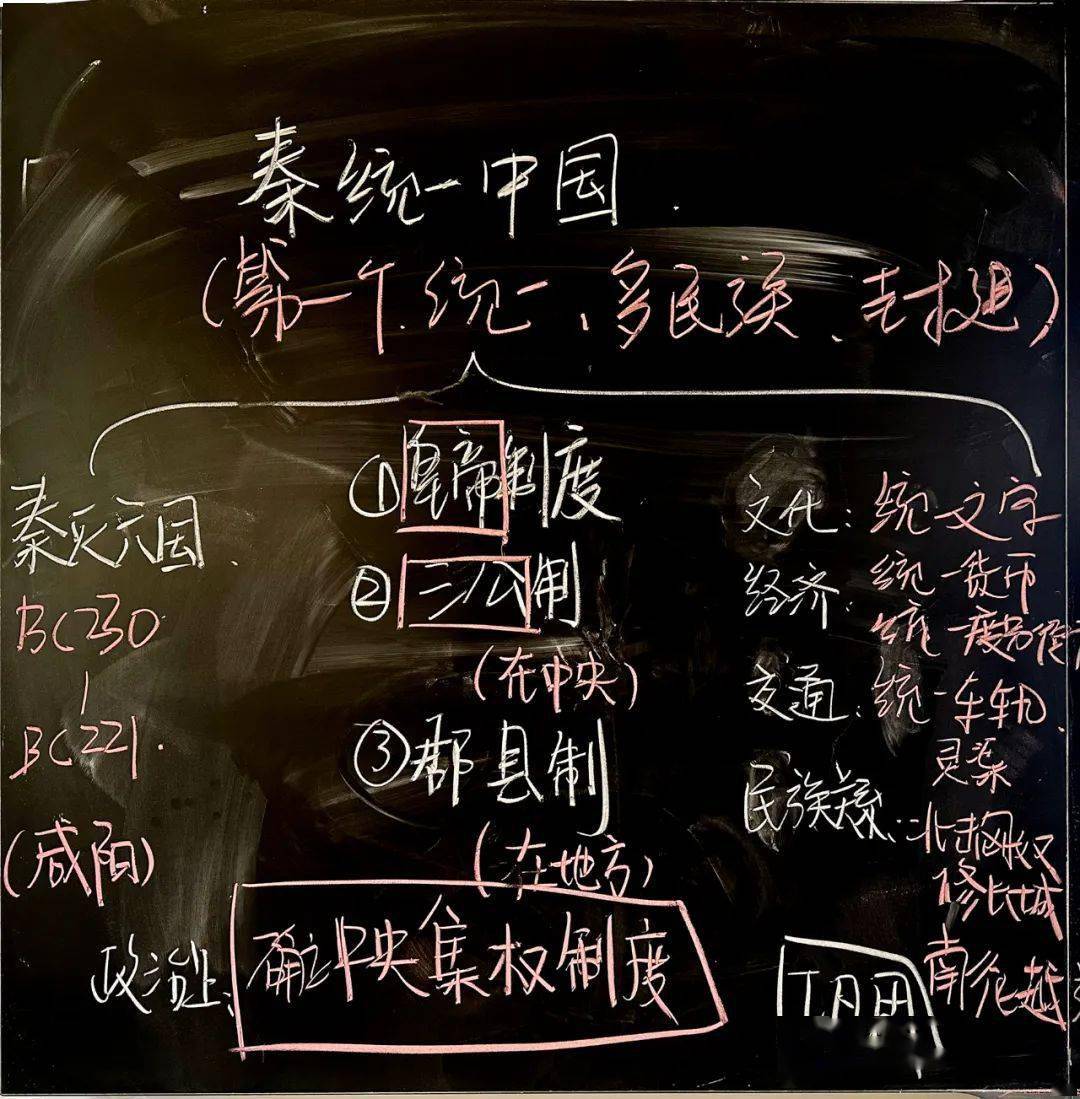 秦统一中国.
(第一个统一、多民族、封建)
秦灭六国.
BC230
|
BC221.
(咸阳)
①皇帝制度
②三公制
(在中央)
③郡县制
(在地方)
政治上:确立中央集权制度
文化:统一文字
经济:统一货币
统一度量衡
交通:统一车轨
灵渠
民族关系:北击匈奴
修长城
南征越